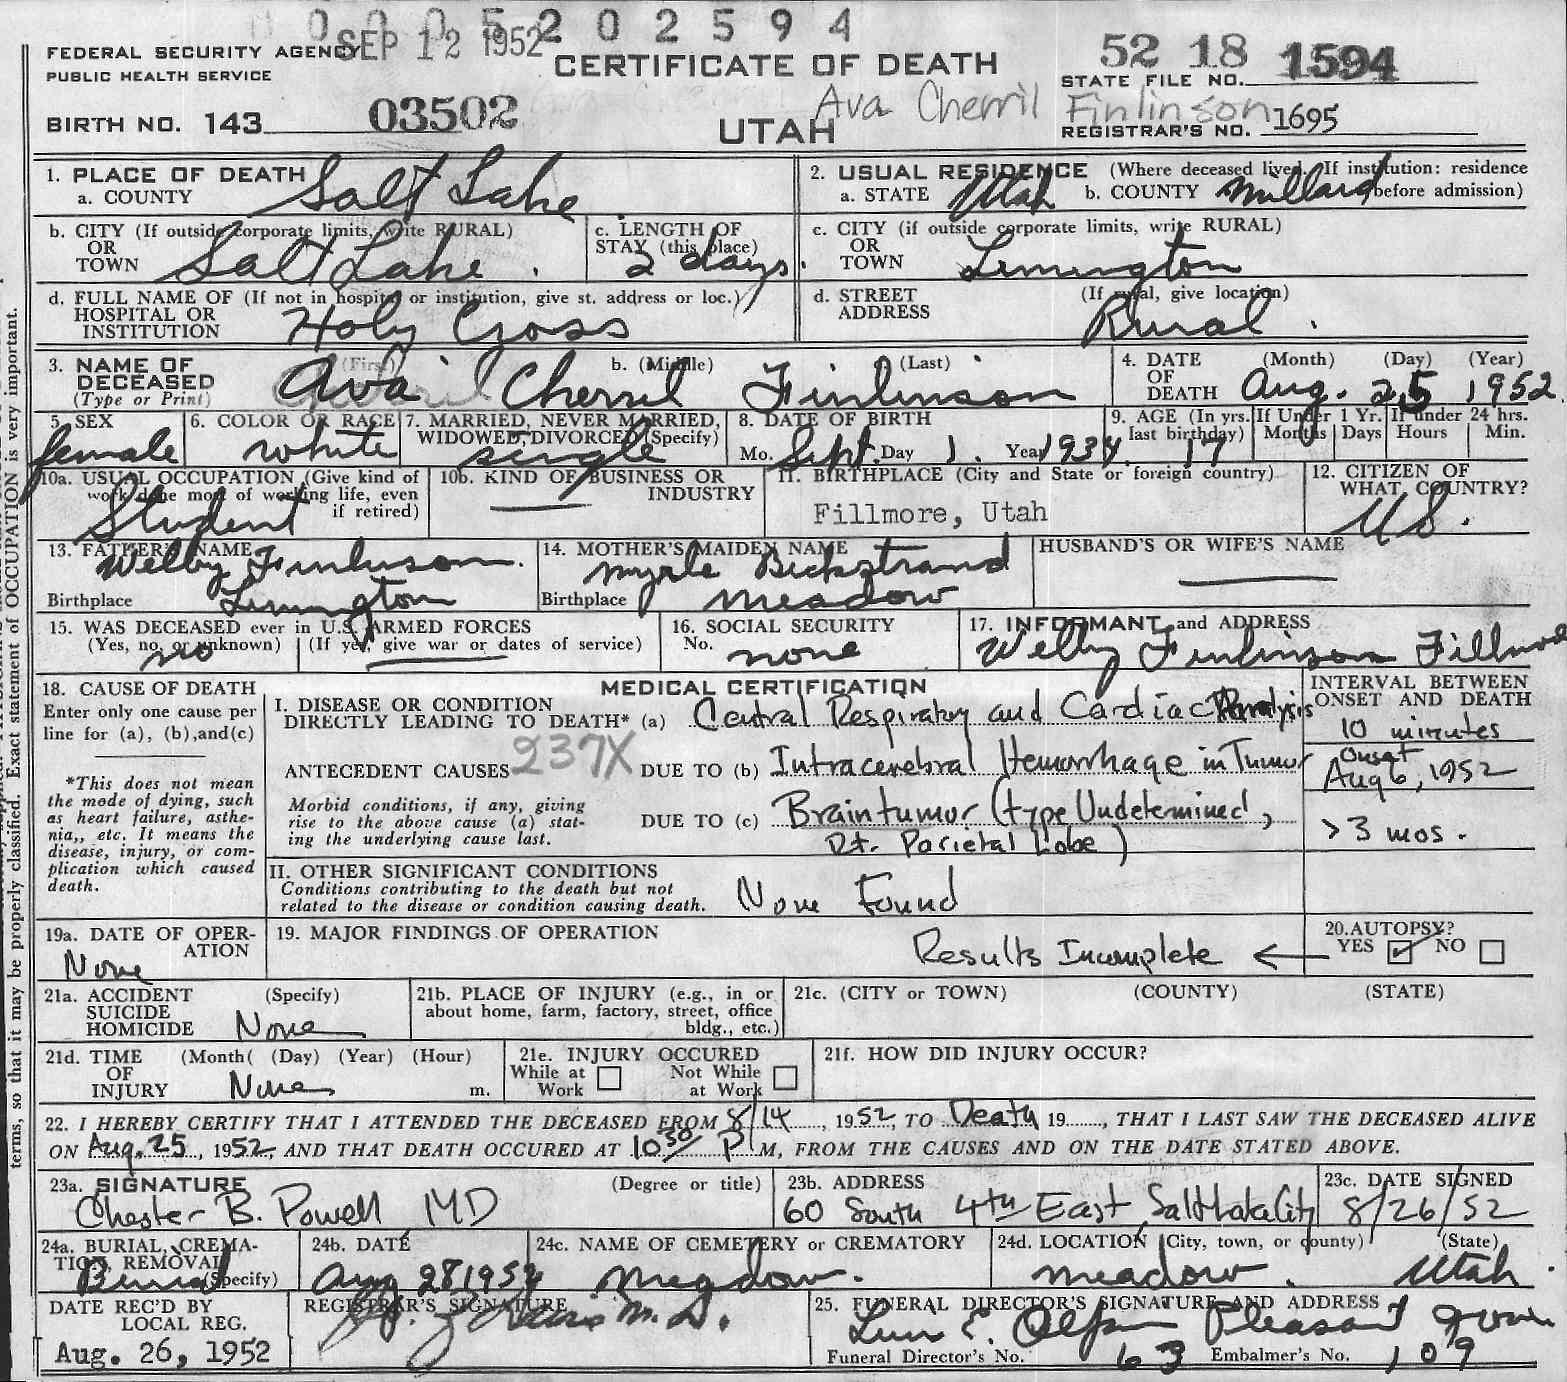 0 0 0 5 2 0 2 5 9 4
FEDERAL SECURITY AGENCY SEP 12 1952
PUBLIC HEALTH SERVICE
CERTIFICATE OF DEATH
52 18 1594
STATE FILE NO.
Ava Cherril Finlinson
BIRTH NO. 143 03502
UTAH
REGISTRAR'S NO. 1695
1. PLACE OF DEATH
a. COUNTY Salt Lake
2. USUAL RESIDENCE (Where deceased lived. If institution: residence
a. STATE Utah b. COUNTY Millard before admission)
b. CITY (If outside corporate limits, write RURAL)
OR
TOWN Salt Lake
c. LENGTH OF
STAY (this place)
2 days.
c. CITY (if outside corporate limits, write RURAL)
OR
TOWN Lemington
d. FULL NAME OF (If not in hospital or institution, give st. address or loc.)
HOSPITAL OR
INSTITUTION Holy Cross
d. STREET (If rural, give location)
ADDRESS Rural.
3. NAME OF DECEASED
(Type or Print)
(First) b. (Middle) (Last)
Ava Cherril Finlinson
4. DATE OF DEATH (Month) (Day) (Year)
Aug. 25 1952
5. SEX
female
6. COLOR OR RACE
white
7. MARRIED, NEVER MARRIED,
WIDOWED, DIVORCED (Specify)
single
8. DATE OF BIRTH
Mo. Sept. Day 1. Year 1934
9. AGE (In yrs. last birthday) 17
If Under 1 Yr. Months Days
If under 24 hrs. Hours Min.
10a. USUAL OCCUPATION (Give kind of
work done most of working life, even
if retired)
Student
10b. KIND OF BUSINESS OR
INDUSTRY
11. BIRTHPLACE (City and State or foreign country)
Fillmore, Utah
12. CITIZEN OF
WHAT COUNTRY?
US.
13. FATHER'S NAME
Welby Finlinson.
Birthplace Lemington
14. MOTHER'S MAIDEN NAME
Myrle Beckstrand
Birthplace Meadow
HUSBAND'S OR WIFE'S NAME
15. WAS DECEASED ever in U.S. ARMED FORCES
(Yes, no, or unknown) (If yes, give war or dates of service)
no
16. SOCIAL SECURITY
No. none
17. INFORMANT and ADDRESS
Welby Finlinson Fillmore
18. CAUSE OF DEATH
Enter only one cause per
line for (a), (b), and (c)
*This does not mean
the mode of dying, such
as heart failure, asthe-
nia,, etc. It means the
disease, injury, or com-
plication which caused
death.
MEDICAL CERTIFICATION
I. DISEASE OR CONDITION
DIRECTLY LEADING TO DEATH* (a) Central Respiratory and Cardiac Paralysis
ANTECEDENT CAUSES 237X DUE TO (b) Intracerebral Hemorrhage in Tumor
Morbid conditions, if any, giving
rise to the above cause (a) stat-
ing the underlying cause last.
DUE TO (c) Brain tumor (type Undetermined,
Rt. Parietal Lobe)
INTERVAL BETWEEN
ONSET AND DEATH
10 minutes
Onset
Aug 6, 1952
>3 mos.
II. OTHER SIGNIFICANT CONDITIONS
Conditions contributing to the death but not
related to the disease or condition causing death.
None Found
19a. DATE OF OPER-
ATION
None
19. MAJOR FINDINGS OF OPERATION
Results Incomplete ←
20. AUTOPSY?
YES ✓ NO
21a. ACCIDENT
SUICIDE
HOMICIDE
(Specify)
None
21b. PLACE OF INJURY (e.g., in or
about home, farm, factory, street, office
bldg., etc.)
21c. (CITY or TOWN) (COUNTY) (STATE)
21d. TIME OF INJURY (Month( (Day) (Year) (Hour)
None m.
21e. INJURY OCCURED
While at Work Not While at Work
21f. HOW DID INJURY OCCUR?
22. I HEREBY CERTIFY THAT I ATTENDED THE DECEASED FROM 8/14, 1952, TO Death 19......, THAT I LAST SAW THE DECEASED ALIVE
ON Aug. 25, 1952, AND THAT DEATH OCCURED AT 10 30 P M, FROM THE CAUSES AND ON THE DATE STATED ABOVE.
23a. SIGNATURE (Degree or title)
Chester B. Powell MD
23b. ADDRESS
60 South 4th East Salt Lake City
23c. DATE SIGNED
8/26/52
24a. BURIAL, CREMA-
TION, REMOVAL
(Specify)
Burial
24b. DATE
Aug 28 1952
24c. NAME OF CEMETERY or CREMATORY
Meadow.
24d. LOCATION (City, town, or county) (State)
Meadow. Utah.
DATE REC'D BY
LOCAL REG.
Aug. 26, 1952
REGISTRAR'S SIGNATURE
M.D.
25. FUNERAL DIRECTOR'S SIGNATURE AND ADDRESS
E. Pleasant Grove
Funeral Director's No. 63 Embalmer's No. 109
terms, so that it may be properly classified. Exact statement of OCCUPATION is very important.